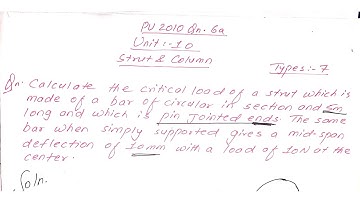 PU 2010 Qn. 6a
Unit:-10
Strut & Column
Types:-7
Qn. Calculate the critical load of a strut which is
made of a bar of circular in section and 5m
long and which is pin jointed ends. The same
bar when simply supported gives a mid-span
deflection of 10mm with a load of 10N at the
center.
Soln.